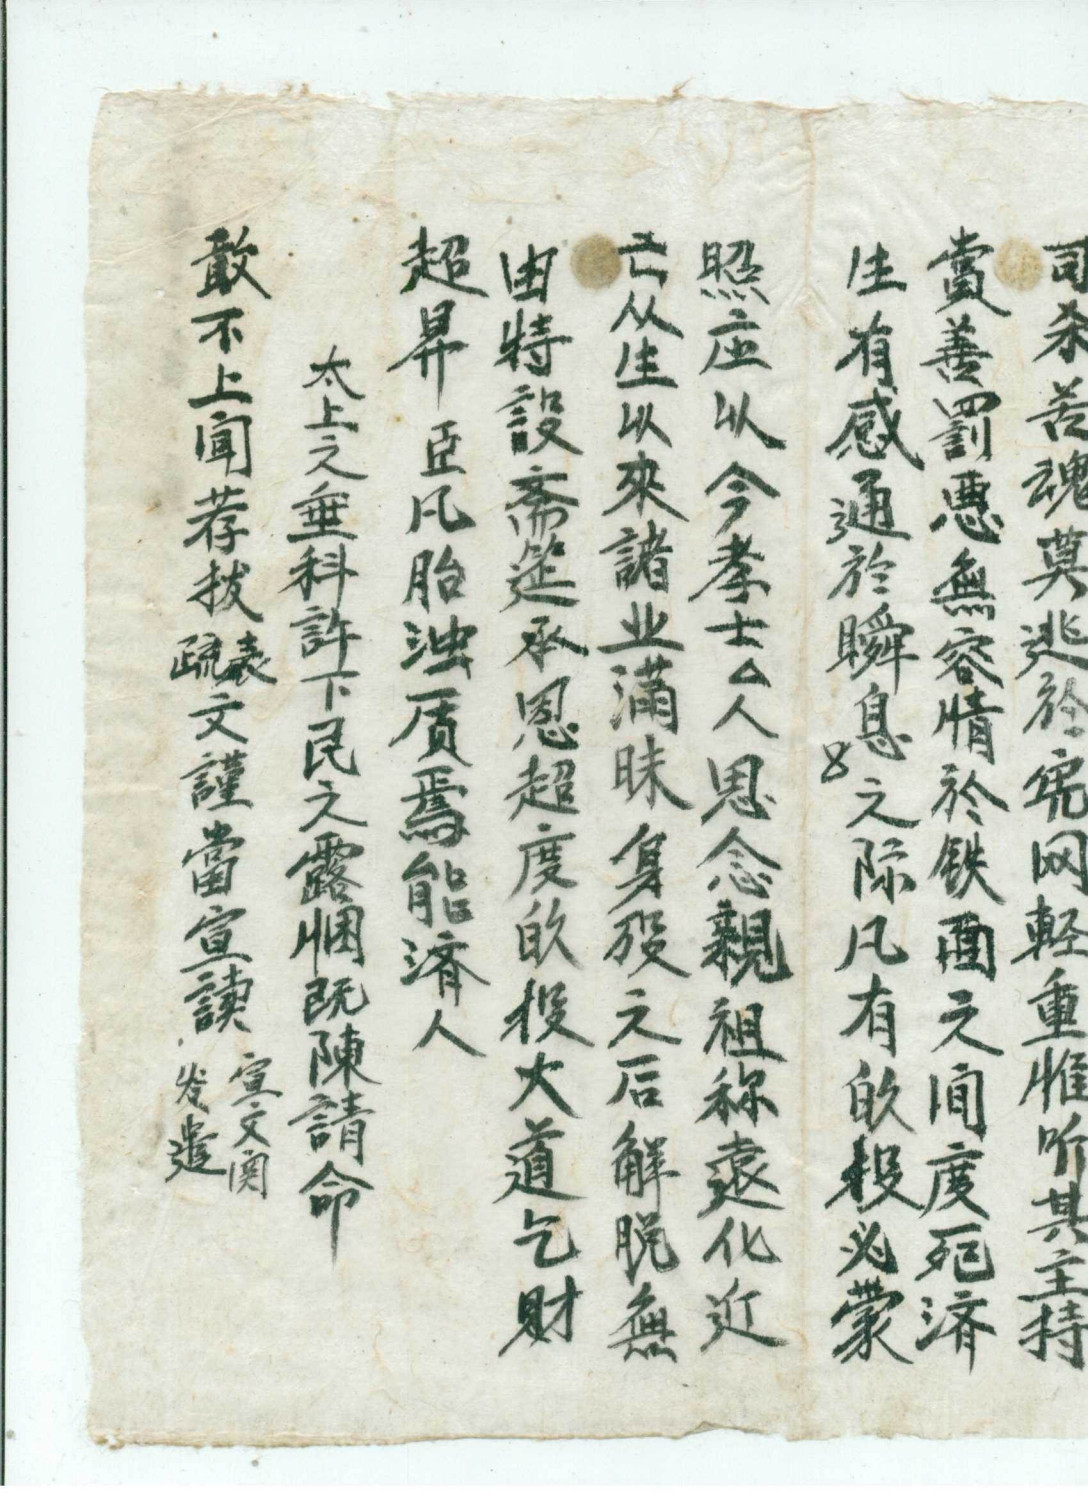 司杀苦魂莫逃於宪网軽重惟听其主持
賞善罰悪無容情於铁面之间度死済
生有感通於瞬息之际凡有皈投必蒙
照㘴以今孝士厶人思念親祖称遠化近
亡从生以來諸业满昧身殁之后解脱無
由特設斋筵承恩超度皈投大道乞财
超昇 臣凡胎浊质焉能済人
太上之垂科許下民之露悃既陳請命
敢不上闻荐拔表疏文謹當宣讀 宣文関发遣